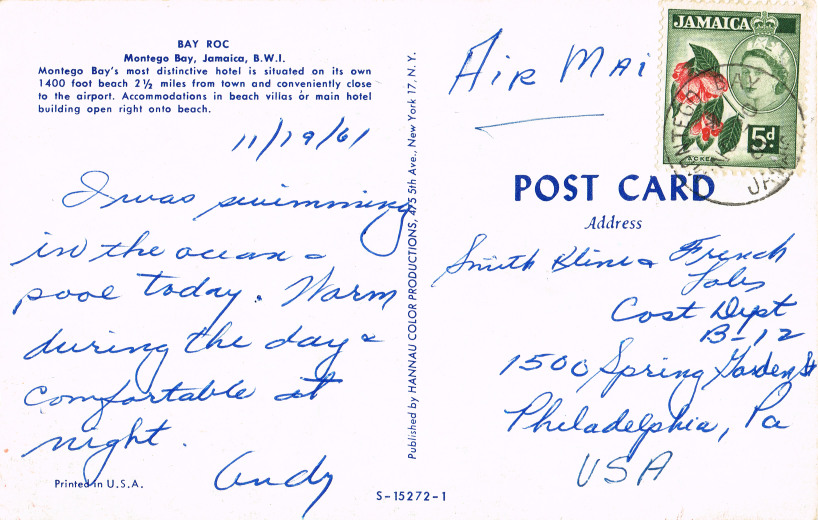 BAY ROC
Montego Bay, Jamaica, B.W.I.
Montego Bay's most distinctive hotel is situated on its own
1400 foot beach 2½ miles from town and conveniently close
to the airport. Accommodations in beach villas or main hotel
building open right onto beach.
11/19/61
I was swimming
in the ocean &
pool today. Warm
during the day &
comfortable at
night.
Andy
Printed in U.S.A.
Published by HANNAU COLOR PRODUCTIONS, 475 5th Ave., New York 17, N.Y.
S-15272-1
AIR MAI
JAMAICA
5d
ACKEE
MONTEGO BAY
POST CARD
Address
Smith Kline & French
Labs
Cost Dept
B-12
1500 Spring Garden St
Philadelphia, Pa
USA